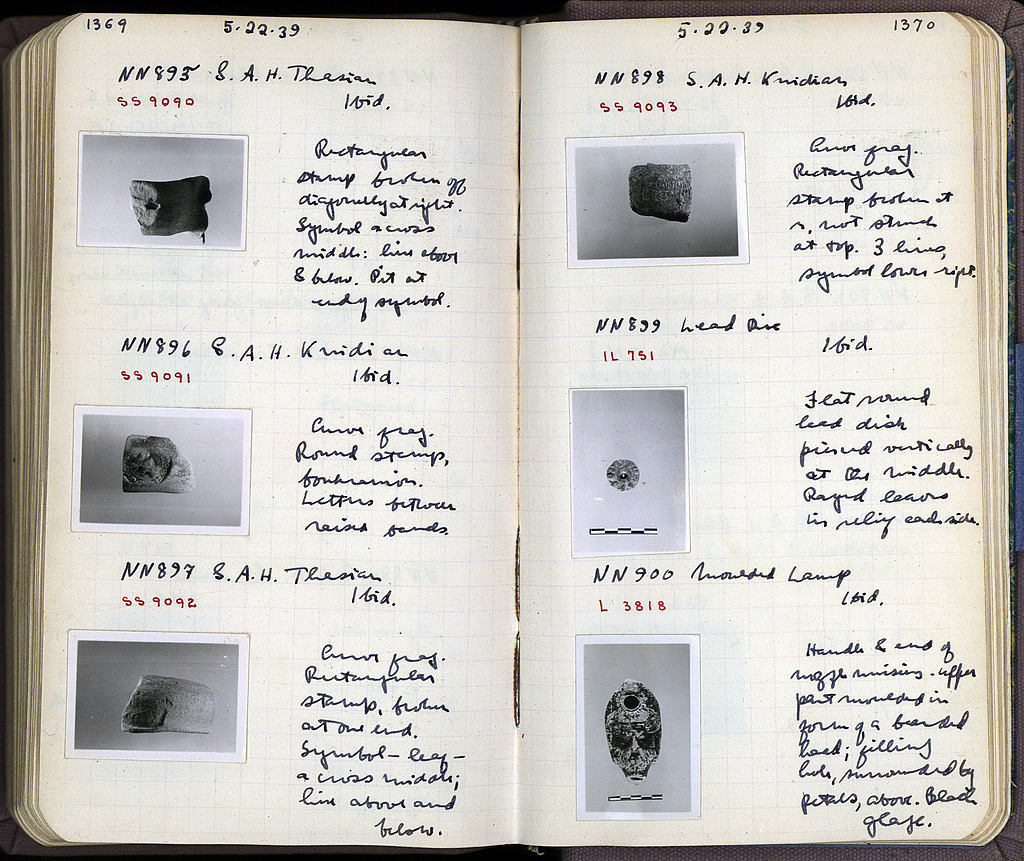 1369
5·22·39
NN895 S.A.H. Thasian
Ibid.
SS 9090
Rectangular
stamp broken off
diagonally at right.
Symbol across
middle: line above
& below. Pit at
end of symbol.
NN896 S.A.H. Knidian
Ibid.
SS 9091
Curve frag.
Round stamp,
Letters between
raised bands.
NN897 S.A.H. Thasian
Ibid.
SS 9092
Curve frag.
Rectangular
stamp, broken
at one end.
Symbol – leaf –
across middle;
line above and
below.
5·22·39
1370
NN898 S.A.H. Knidian
Ibid.
SS 9093
Curve frag.
Rectangular
stamp broken at
r, not struck
at top. 3 lines,
symbol lower right.
NN899 Lead Disc
Ibid.
IL 751
Flat round
lead disk
pierced vertically
at the middle.
Rayed leaves
in relief each side.
NN900 Moulded Lamp
Ibid.
L 3818
Handle & end of
nozzle missing. Upper
part moulded in
form of a bearded
head; filling
hole, surrounded by
petals, above. Black
glaze.